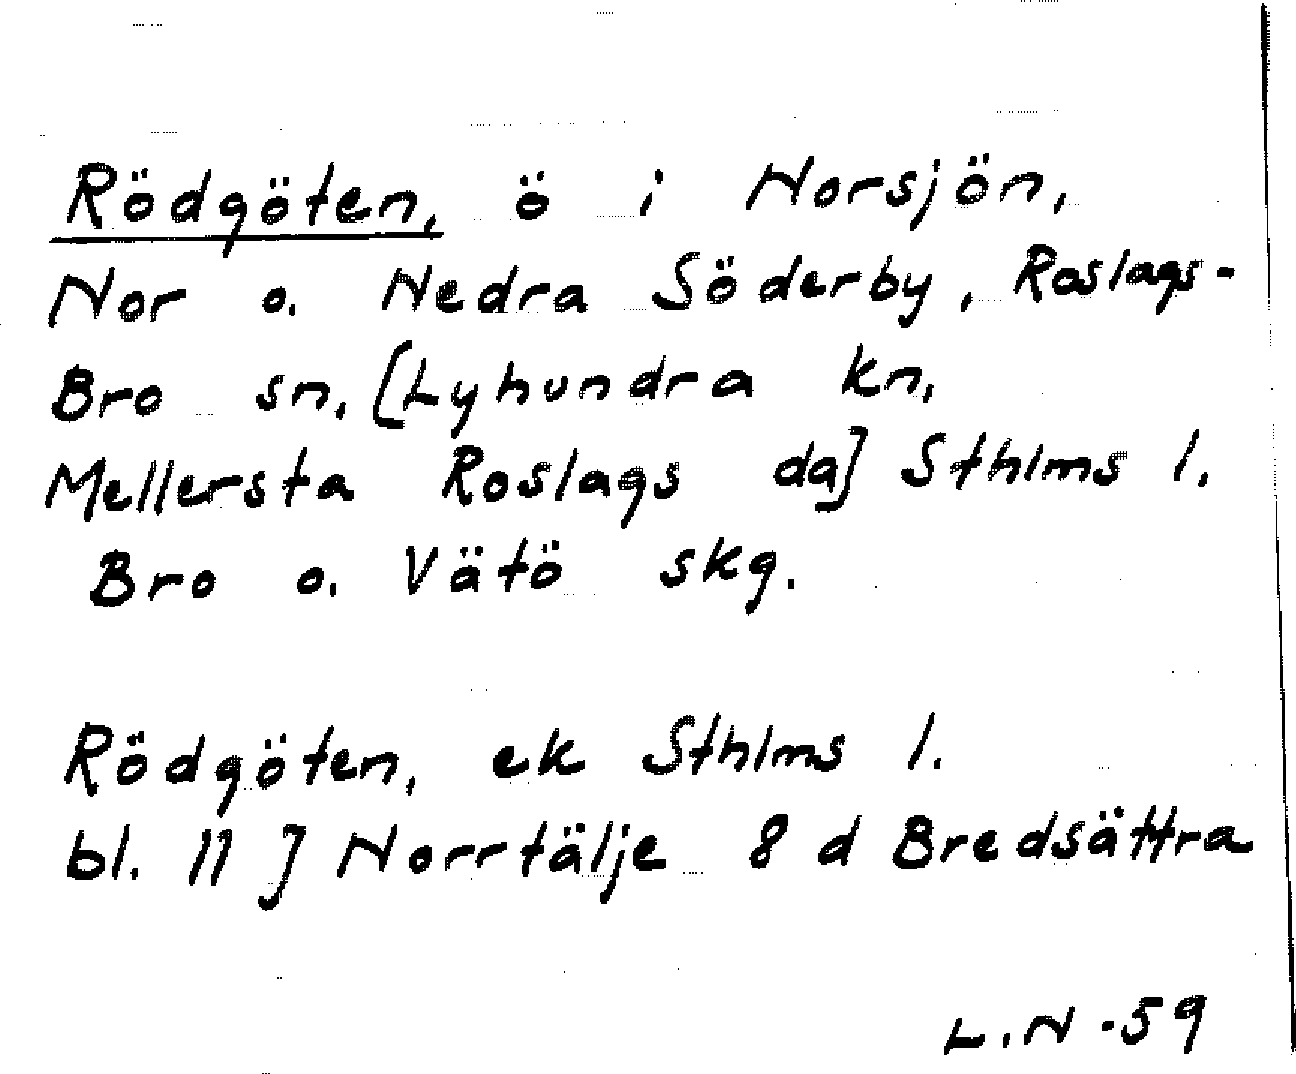 Rödgöten, ö i Norsjön,
Nor o. Nedra Söderby, Roslags-
Bro sn. [Lyhundra kn,
Mellersta Roslags dg] Sthlms l.
Bro o. Vätö skg.
Rödgöten, ek Sthlms l.
bl. 11 J Norrtälje 8 d Bredsättra
L.N-59